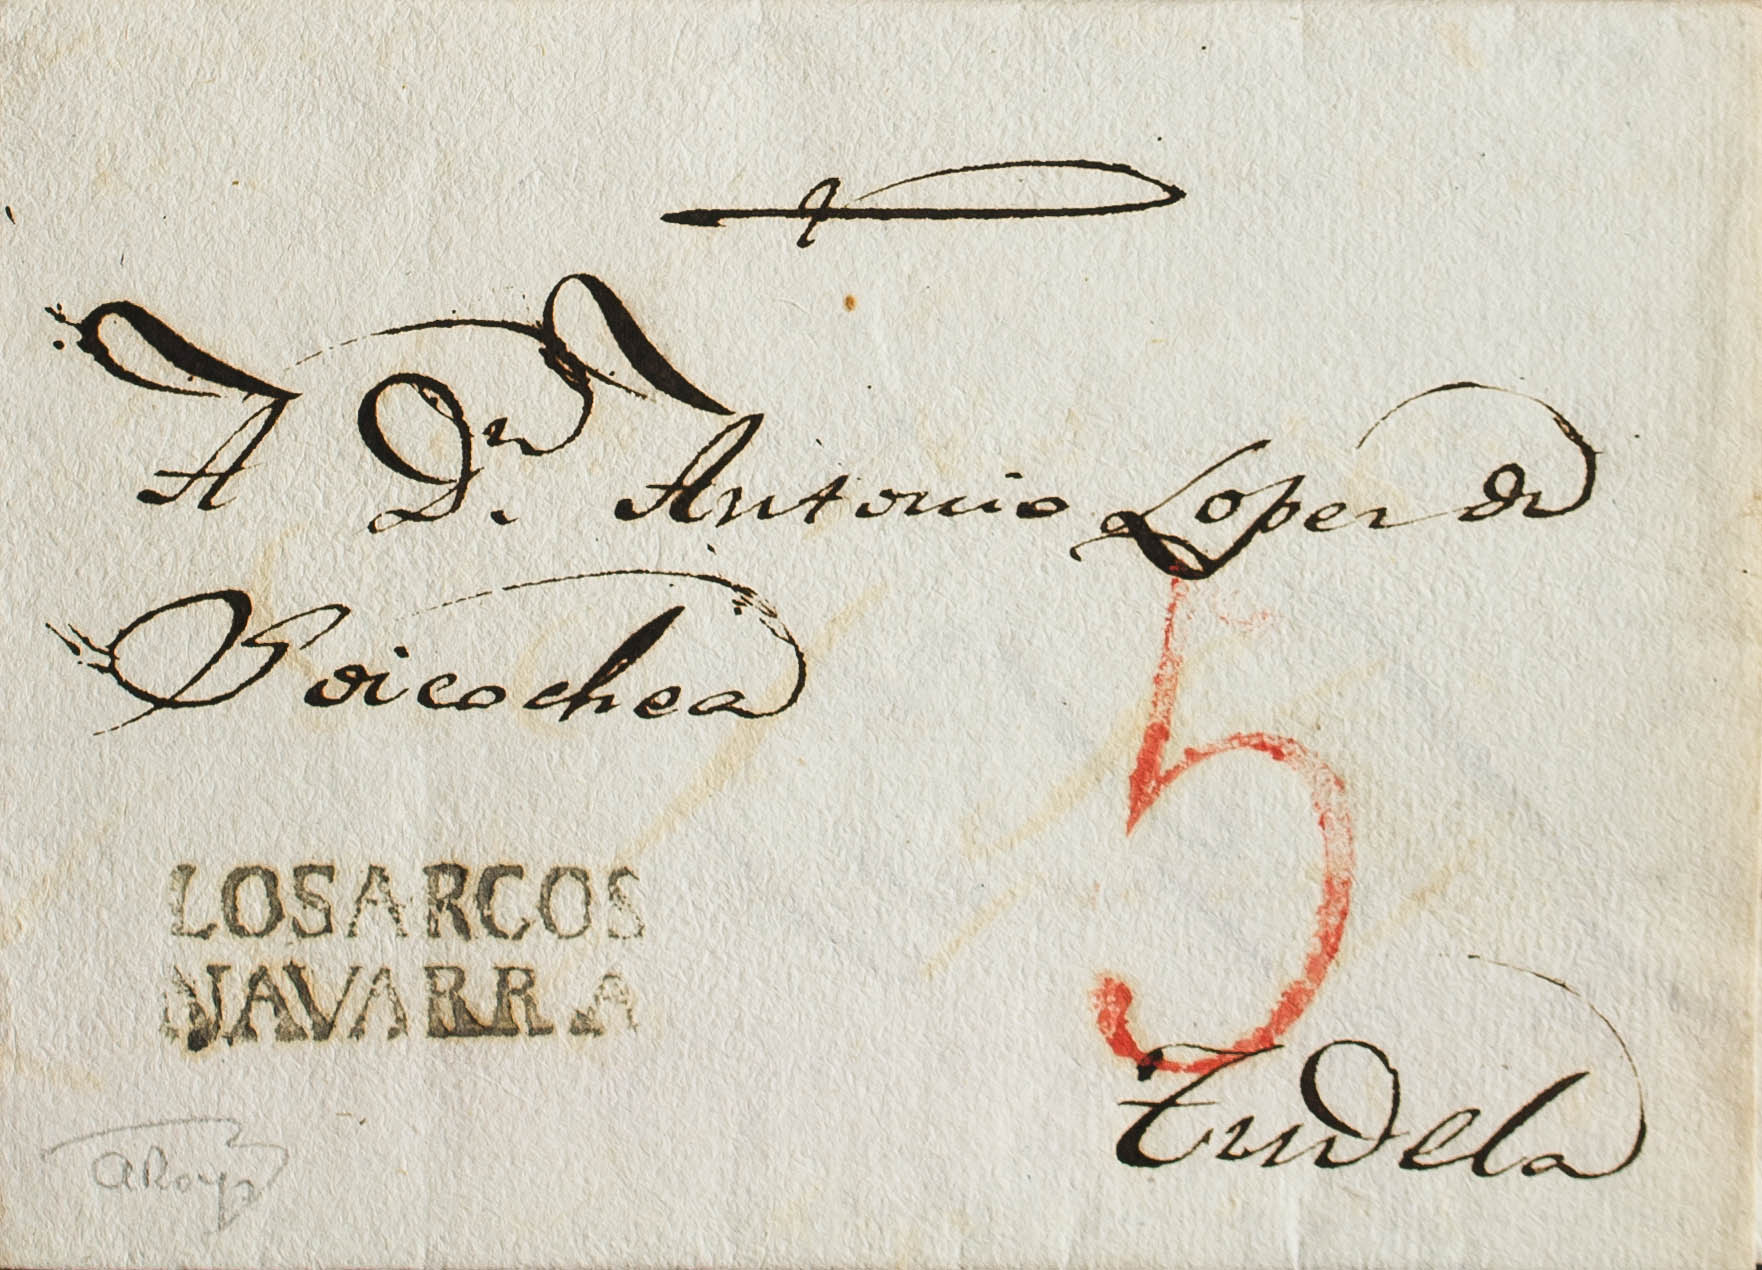 A Dn. Antonio Lopez de
Goicochea
5
LOSARCOS
NAVARRA
Tudela